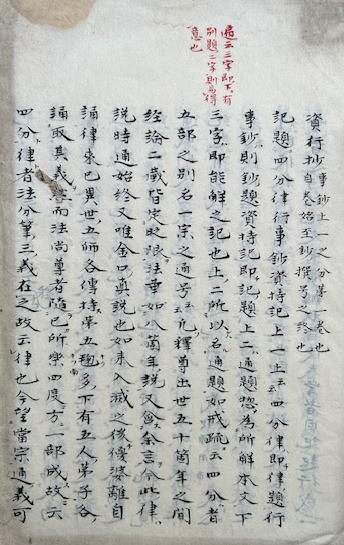 遍云三字即下有
別題二字則為得
意也
資行抄 事鈔上一之分第一卷也
自卷始至鈔撰号之終也
記題四分律行事鈔資持記上一上云云四分律即律題行
事鈔則鈔題資持記即記題上二通題惣為所解本文下
三字即能解之記也上二所以名通題如戒疏云四分者
五部之別名一宗之通号云云凡釋尊出世五十箇年之間
經論二藏皆定時限法華如八箇年說又會余言今此律
說時通始終又唯金口真說也如來入滅之後優婆離自
誦律來已異世五師各傳持第五麹多下有五人弟子各
誦取其義 而法尚尊者隨已所樂四度方一部成故云
四分律者法分第三義在之故云律也今望當宗通義可